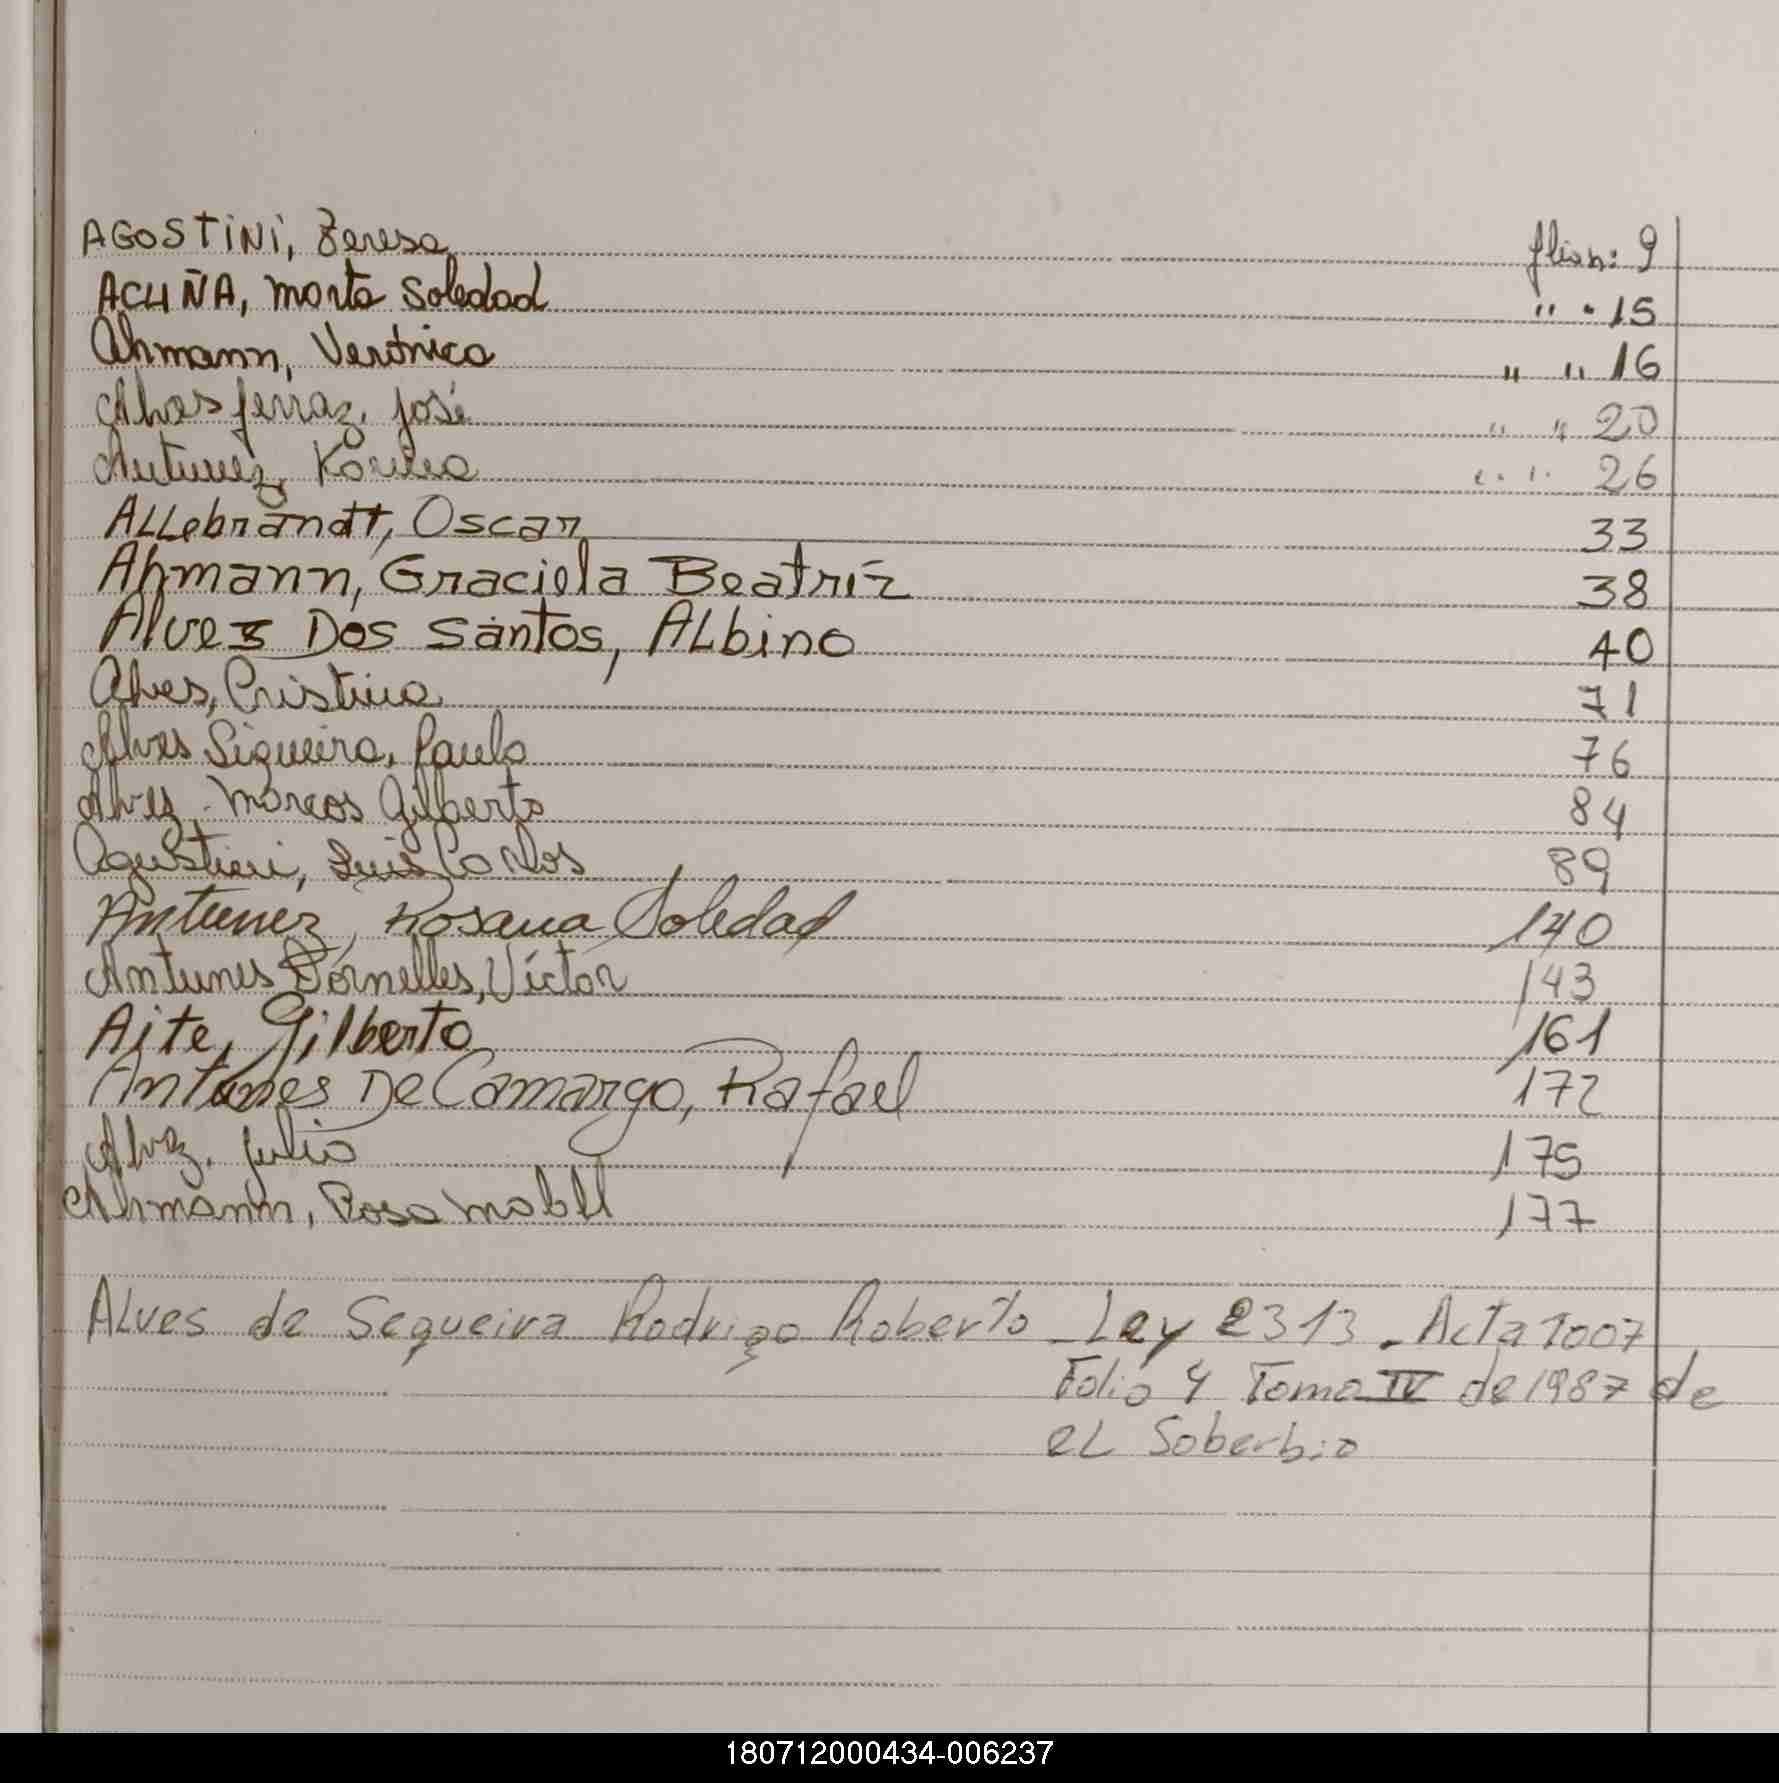 AGOSTINI, Teresa 9
ACUÑA, Marta Soledad " " 15
Ahmann, Verónica " " 16
Alves Ferraz, José " " 20
Antunez, Karina " " 26
ALLebrandt, Oscar 33
Ahmann, Graciela Beatriz 38
Alves Dos Santos, ALbino 40
Alves, Cristina 71
Alves Siqueira, Paulo 76
Alvez, Marcos Gilberto 84
Agustini, Luis Carlos 89
Antunez, Rosana Soledad 140
Antunes Dornelles, Víctor 143
Aite, Gilberto 161
Antunes De Camargo, Rafael 172
Alvez, Julio 175
Ahmann, Rosa Mabel 177
ALves de Sequeira Rodrigo Roberto - Ley 2313 - Acta 1007
Folio 4 Tomo IV de 1987 de
eL Soberbio
180712000434-006237